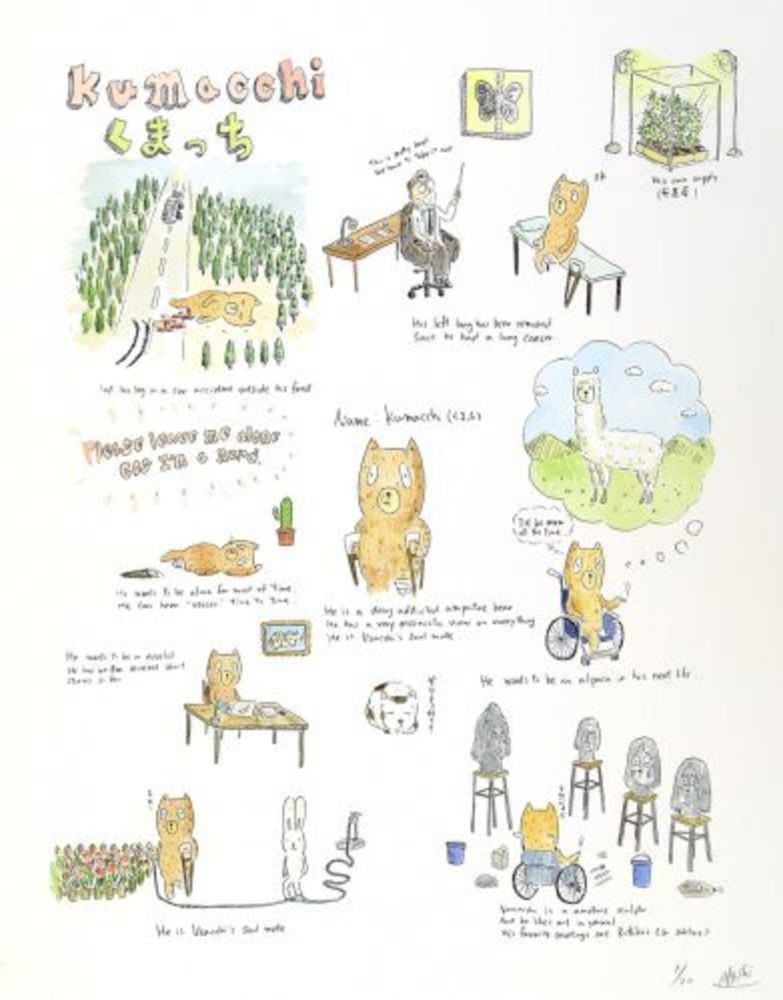 Kumacchi
くまっち
This is pretty bad
We have to take it out
OK
His own supply
His left lung has been removed
Since he had a lung cancer
lost his leg in a car accident outside his forest
Please leave me alone
Coz I'm a nerd.
Name: Kumacchi (くまっち)
I'll be stoned
all the time
He wants to be alone for most of time.
He can hear "voices" time to time.
He is a drug addicted amputee bear
He has a very pessimistic view on everything
He is Usacchi's soul mate
He wants to be a novelist
He has written several short
stories so far
He wants to be an alpaca in his next life.
He is Usacchi's soul mate
Kumacchi is a amateur sculptor.
And he likes art in general
His favorite paintings are